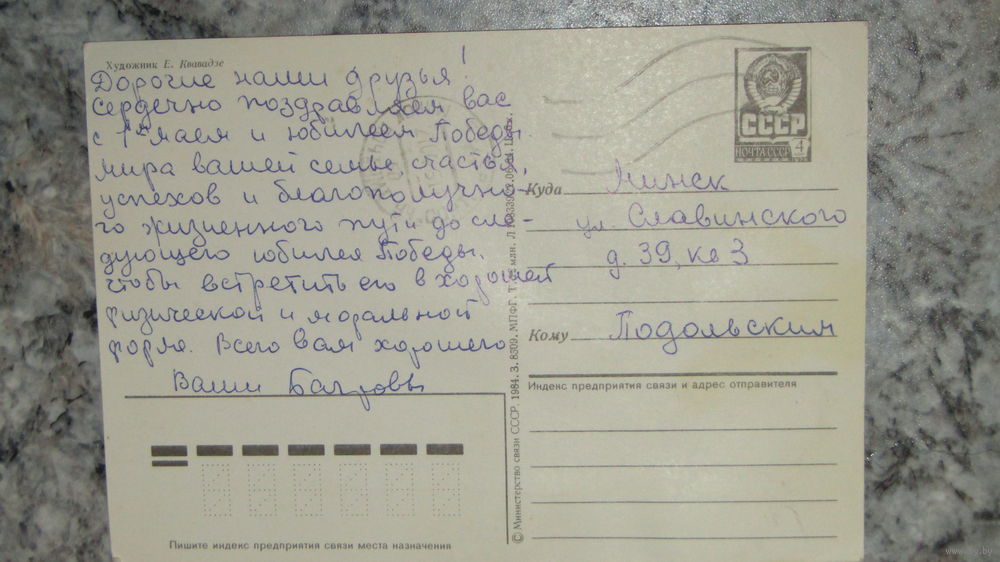 Художник Е. Квавадзе
Дорогие наши друзья!
Сердечно поздравляем вас
с 1ым маем и юбилеем Победы.
мира вашей семье, счастья,
успехов и благополучно-
го жизненного пути до сле-
дующего юбилея Победы,
чтобы встретить его в хорошей
физической и моральной
форме. Всего вам хорошего
Ваши Багровы
ПОЧТА СССР
4
Куда Минск
ул. Славинского
д. 39, кв 3
Кому Подольским
Индекс предприятия связи и адрес отправителя
© Министерство связи СССР. 1984. З. 8309. МПФГ.
Пишите индекс предприятия связи места назначения